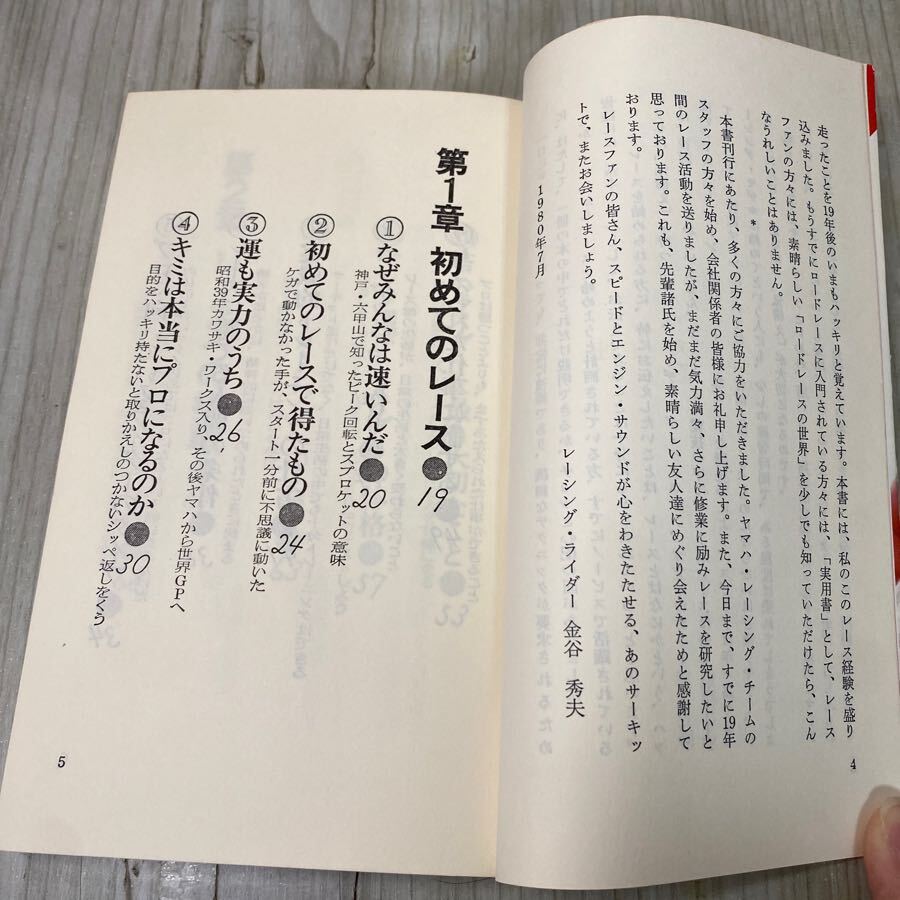 走ったことを19年後のいまもハッキリと覚えています。本書には、私のこのレース経験を盛り
込みました。もうすでにロードレースに入門されている方々には、「実用書」として、レース
ファンの方々には、素晴らしい「ロードレースの世界」を少しでも知っていただけたら、こん
なうれしいことはありません。
*
本書刊行にあたり、多くの方々にご協力をいただきました。ヤマハ・レーシング・チームの
スタッフの方々を始め、会社関係者の皆様にお礼申し上げます。また、今日まで、すでに19年
間のレース活動を送りましたが、まだまだ気力満々、さらに修業に励みレースを研究したいと
思っております。これも、先輩諸氏を始め、素晴らしい友人達にめぐり会えたためと感謝して
おります。
レースファンの皆さん、スピードとエンジン・サウンドが心をわきたたせる、あのサーキッ
トで、またお会いしましょう。
1980年7月
レーシング・ライダー 金谷 秀夫
4
第1章 初めてのレース●19
①なぜみんなは速いんだ●20
神戸・六甲山で知ったピーク回転とスプロケットの意味
②初めてのレースで得たもの●24
ケガで動かなかった手が、スタート一分前に不思議に動いた
③運も実力のうち●26
昭和39年カワサキ・ワークス入り、その後ヤマハから世界GPへ
④キミは本当にプロになるのか●30
目的をハッキリ持たないと取りかえしのつかないシッペ返しをくう
5